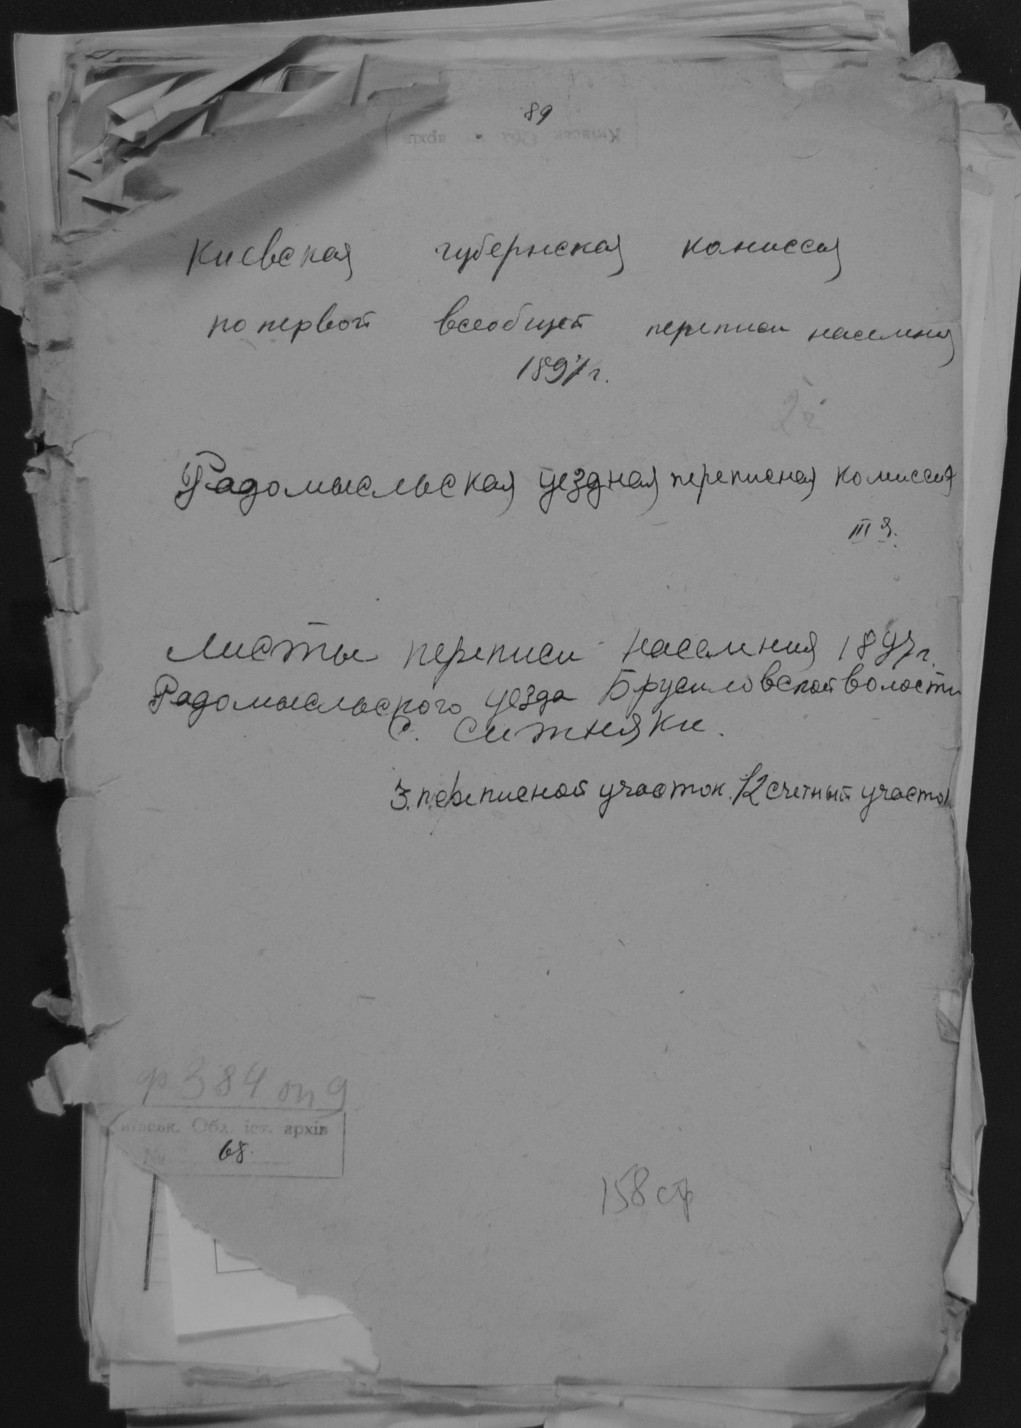 89
Киевская губернская комиссия
по первой всеобщей переписи населения
1897 г.
Радомысльская уездная переписная комиссия
III З.
Листы переписи населения 1897 г.
Радомысльского уезда Брусиловской волости
С. Ситняки.
3. переписной участок. 12 счетный участок
ф 384 оп 9
Київськ. Обл. іст. архів
№ 68
158 стр